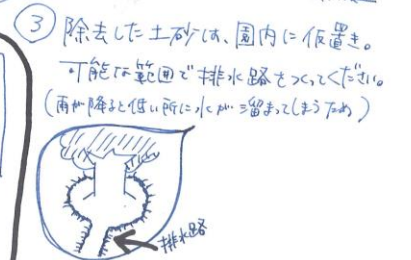 ③ 除去した土砂は、園内に仮置き。
可能な範囲で排水路をつくってください。
(雨が降ると低い所に水が溜まってしまうため)
排水路